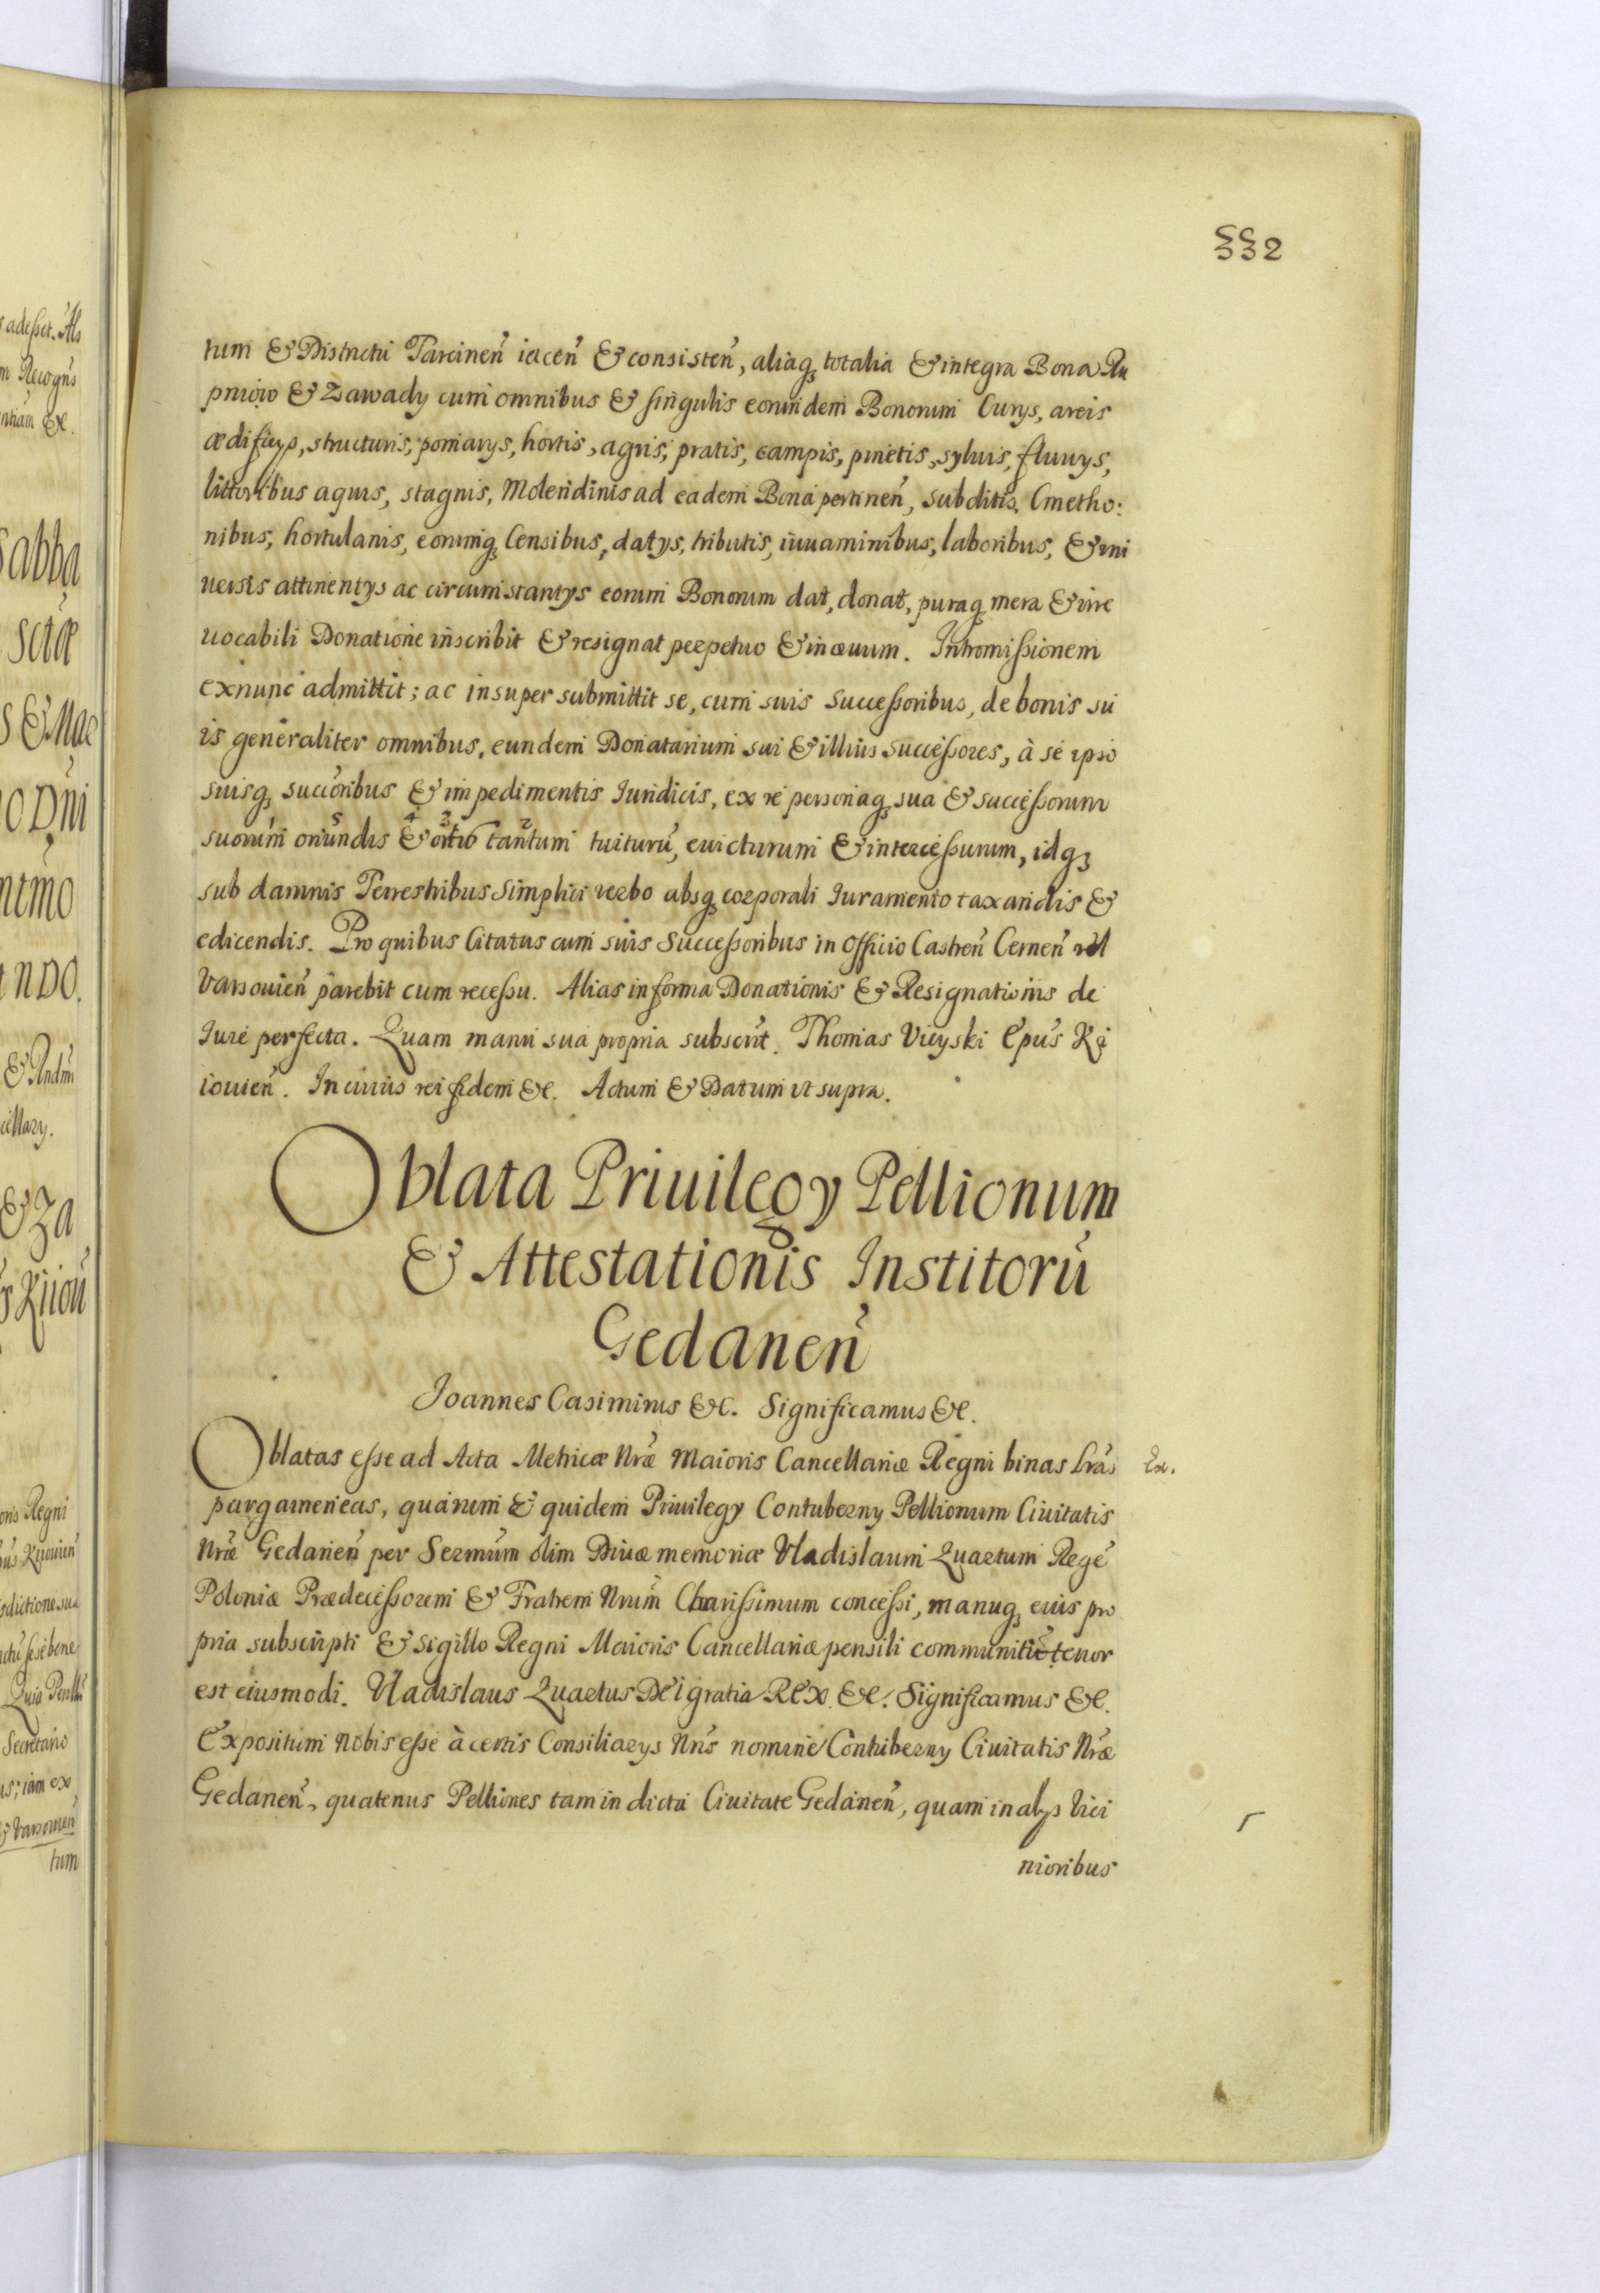 332
tum & Districtu Tarcinen̄ iacen̄ & consisten̄, aliaq; totalia & integra Bona Ru
pniow & Zawady cum omnibus & singulis eorundem Bonorum Curys, areis
ædificys, structuris, pomarys, hortis, agris, pratis, campis, pinetis, syluis, fluuys,
littoribus aquis, stagnis, Molendinis ad eadem Bona pertinen̄, subditis, Cmetho:
nibus, hortulanis, eorumq; Censibus, datys, tributis, iuuaminibus, laboribus, & uni
uersis attinentys ac circumstantys eorum Bonorum dat, donat, puraq; mera & irre
uocabili Donatione inscribit & resignat perpetuo & in æuum. Intromissionem
exnunc admittit; ac insuper submittit se, cum suis Successoribus, de bonis su
is generaliter omnibus, eundem Donatarium sui & illius successores, à se ipso
suisq; succōribus & impedimentis Iuridicis, ex re personaq; sua & successorum
suorum oriundis & ortis tantum tuiturū, euicturum & intercessurum, idq;
sub damnis Terrestribus simplici verbo absq; corporali Iuramento taxandis &
edicendis. Pro quibus Citatus cum suis Successoribus in Officio Castren̄ Cernen̄ vel
Varsouien̄ parebit cum recessu. Alias in forma Donationis & Resignationis de
Iure perfecta. Quam manu sua propria subscrit. Thomas Vieyski Epus Ki
iouien̄. In cuius rei fidem &c. Actum & Datum ut supra.
Oblata Priuilegy Pellionum
& Attestationis Institorū
Gedanen̄
Joannes Casimirus &c. Significamus &c.
Oblatas esse ad Acta Metricæ Nræ Maioris Cancellariæ Regni binas Lrās Ex.
pargameneas, quarum & quidem Priuilegy Contuberny Pellionum Ciuitatis
Nræ Gedanen̄ per Sermūm olim Diuæ memoriæ Vladislaum Quartum Regē
Poloniæ Prædecessorem & Fratrem Nrum Charissimum concessi, manuq; eius pro
pria subscripti & sigillo Regni Maioris Cancellariæ pensili communiti tenor
est eiusmodi. Vladislaus Quartus Dei gratia Rex &c. Significamus &c.
Expositum Nobis esse à certis Consiliarys Nrīs nomine Contuberny Ciuitatis Nræ
Gedanen̄, quatenus Pelliones tam in dicta Ciuitate Gedanen̄, quam in alys Vici
nioribus